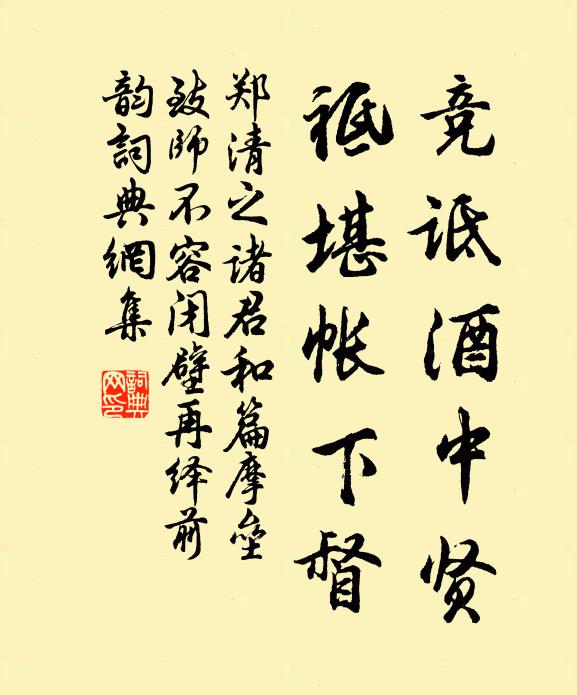 竞诋酒中贤
祗堪帐下督
郑清之诸君和篇摩垒
致师不容闭壁再绎前
韵词典网集
詞典网印